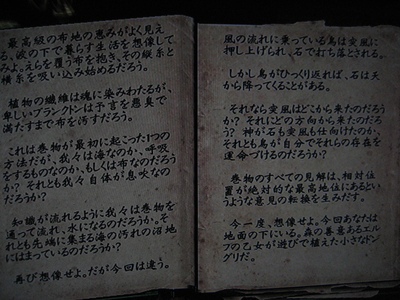 最高級の布地の恵みがよく見え
る、波の下で暮らす生活を想像して
みよ。えらを覆う布を抱き、その縦糸と
横糸を吸い込み始めるだろう。
植物の繊維は魂に染みわたるが、
卑しいプランクトンは予言を悪臭で
満たすまで布を汚すだろう。
これは巻物が最初に起こった1つの
方法だが、我々は海なのか、呼吸
をするものなのか、もしくは布なのだろう
か? それとも我々自体が息吹なの
だろうか?
知識が流れるように我々は巻物を
通って流れ、水になるのだろうか。そ
れとも先端に集まる海の汚れの沼地
にはまっているのだろうか?
再び想像せよ。だが今回は違う。
風の流れに乗っている鳥は突風に
押し上げられ、石で打ち落とされる。
しかし鳥がひっくり返れば、石は天
から降ってくることがある。
それなら突風はどこから来たのだろう
か? それにどの方向から来たのだろ
う? 神が石も突風も仕向けたのか、
それとも鳥が自分でそれらの存在を
運命づけるのだろうか?
巻物のすべての見解は、相対位
置が絶対的な最高地位にあるとい
うような意見の転換を生みだす。
今一度、想像せよ。今回あなたは
地面の下にいる。森の善意あるエル
フの乙女が遊びで植えた小さなドン
グリだ。